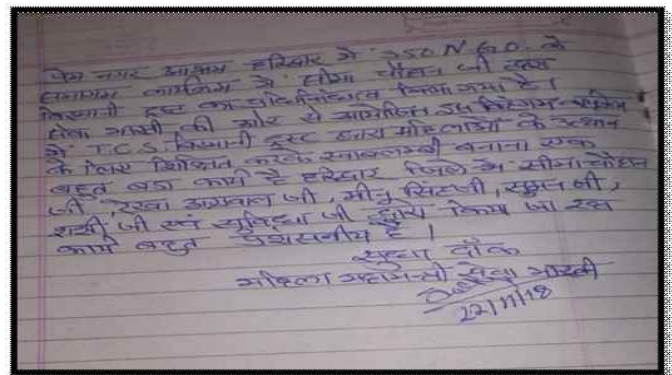 प्रेम नगर आश्रम हरिद्वार में 250 N.G.O. के
समागम कार्यक्रम में सीमा चौहान जी द्वारा
ट्रस्ट का प्रतिनिधित्व किया गया है।
सेवा भारती की ओर से आयोजित इस
में T.C.S. ट्रस्ट द्वारा महिलाओं के उत्थान
के लिए शिक्षित करके स्वावलम्बी बनाना एक
बहुत बड़ा कार्य है हरिद्वार जिले में सीमा चौहान
जी, रेखा अग्रवाल जी, मीनू जी, सुमन जी,
शशी जी एवं जी द्वारा किया जा रहा
कार्य बहुत प्रशंसनीय है।
सुधा
महिला महामन्त्री सेवा भारती
22/11/18